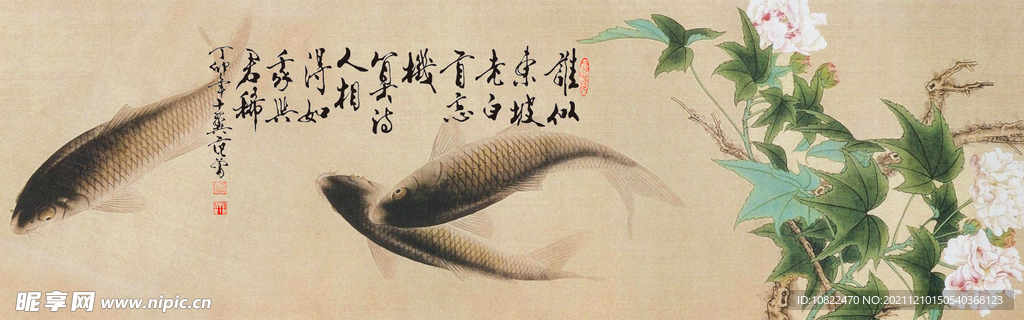 誰似
東坡
老白
首忘
機
算詩
人相
得如
我與
君稀
丁卯年十翼范曾
昵享网 www.nipic.cn
ID:10822470 NO:20211210150540368123